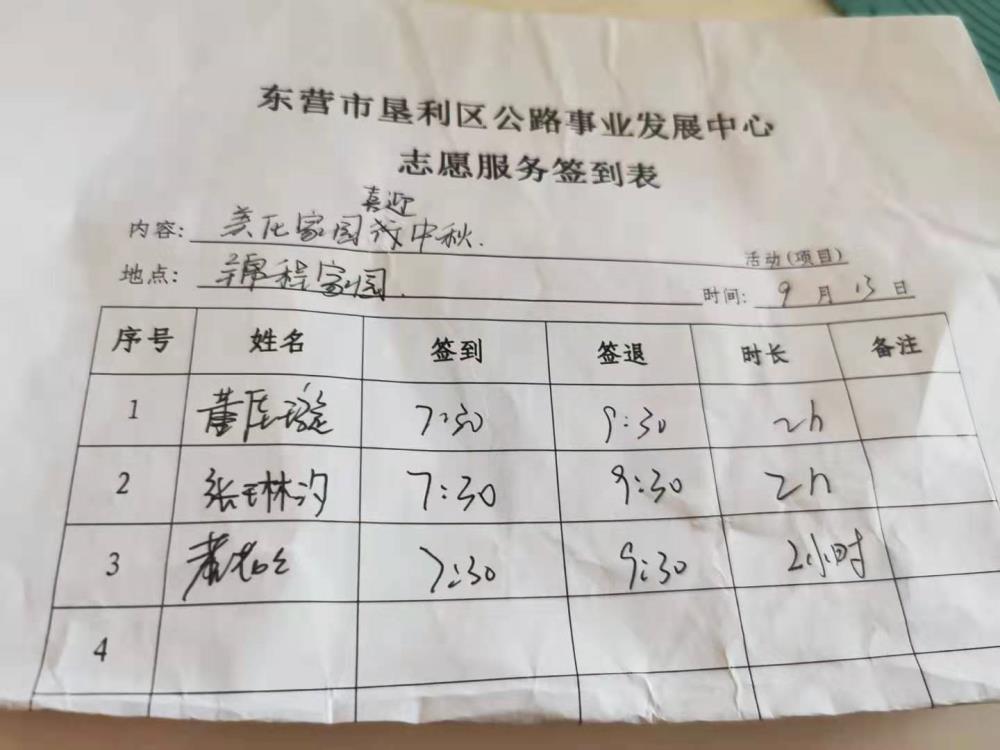 东营市垦利区公路事业发展中心
志愿服务签到表
喜迎
内容: 美化家园 中秋. 活动(项目)
地点: 锦程家园. 时间: 9 月 13 日
序号 姓名 签到 签退 时长 备注
1 董 璇 7:30 9:30 2h
2 张 林汐 7:30 9:30 2h
3 7:30 9:30 2小时
4